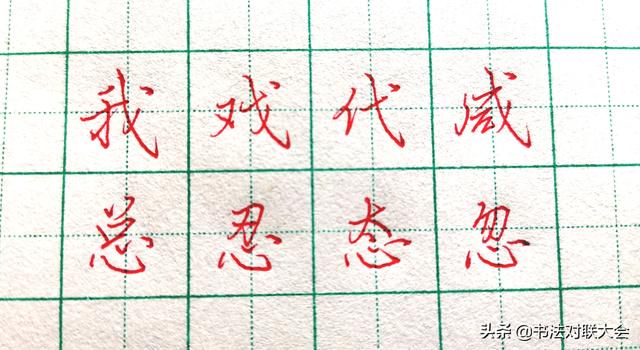 我戏代威
总忍态忽
头条@书法对联大会